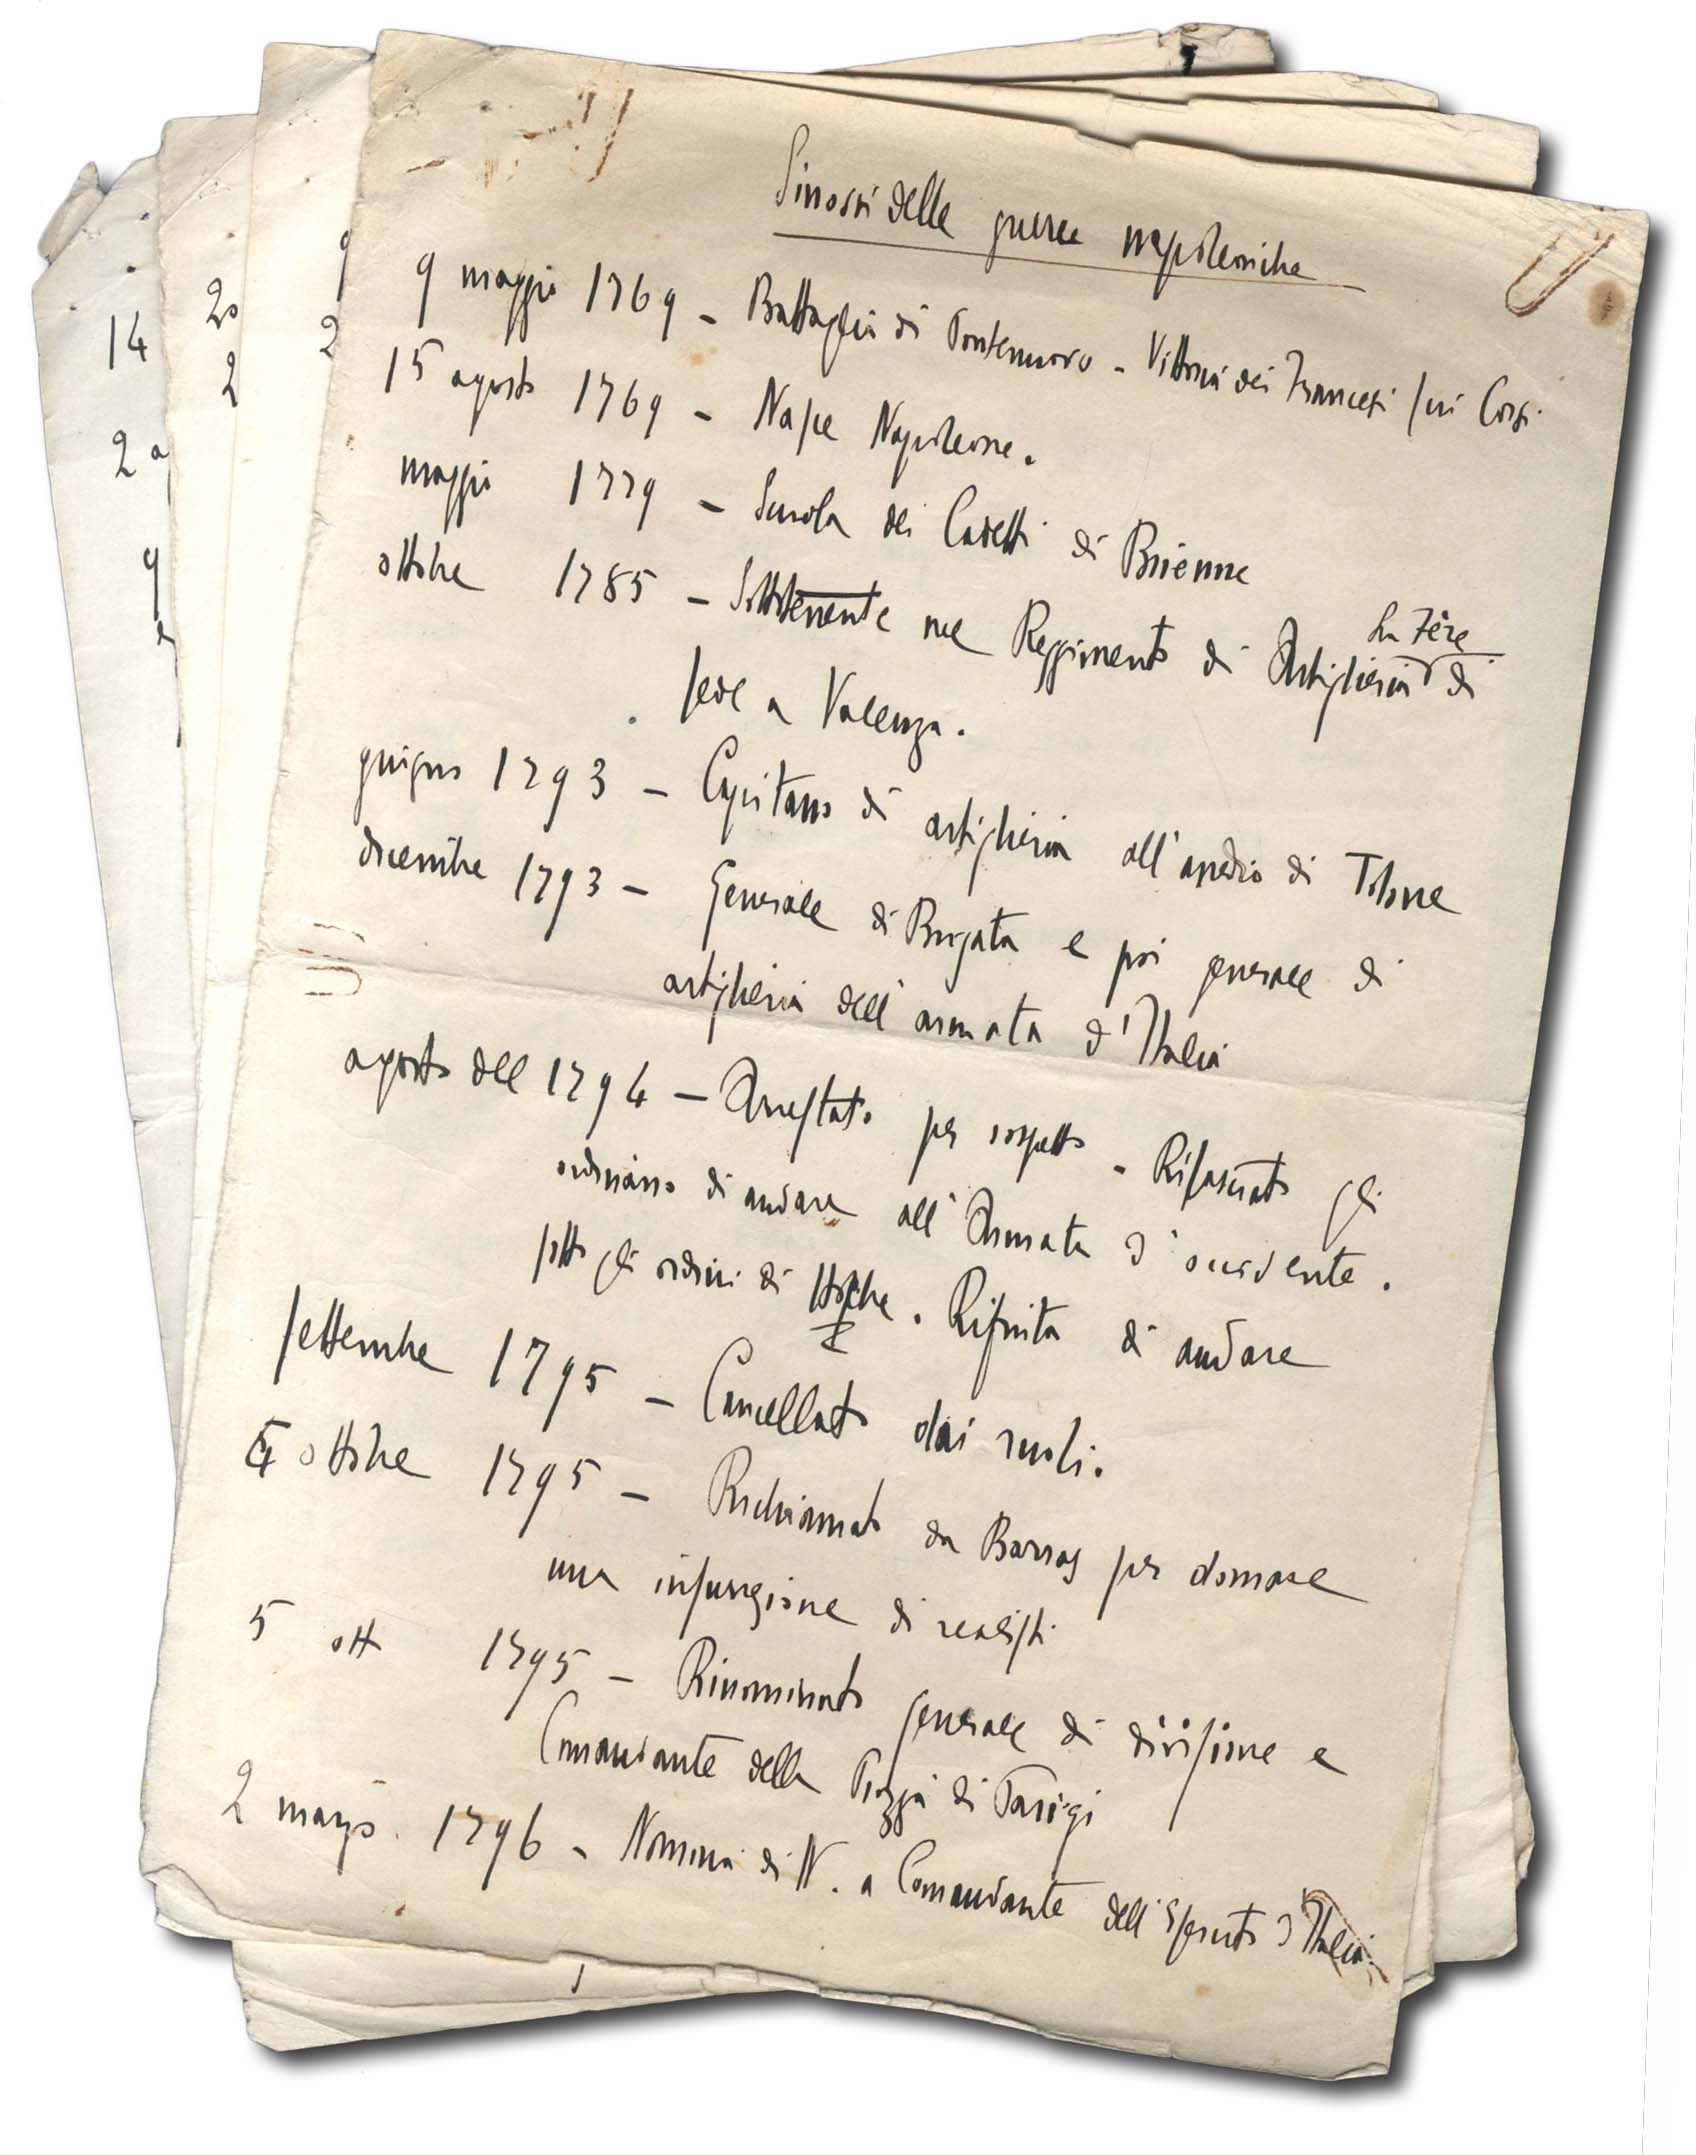 Sinossi delle guerre napoleoniche
9 maggio 1769 - Battaglia di Pontenuovo - Vittoria dei Francesi sui Corsi.
15 agosto 1769 - Nasce Napoleone.
maggio 1779 - Scuola dei Cadetti di Brienne
ottobre 1785 - Sottotenente nel Reggimento di Artiglieria La Fère di
sede a Valenza.
giugno 1793 - Capitano di artiglieria all'assedio di Tolone
dicembre 1793 - Generale di Brigata e poi generale di
artiglieria dell'armata d'Italia
agosto del 1794 - Arrestato per sospetto - Rilasciato gli
ordinano di andare all'Armata d'occidente.
sotto gli ordini di Hoche. Rifiuta di andare
settembre 1795 - Cancellato dai ruoli.
4 ottobre 1795 - Richiamato da Barras per domare
una insurrezione di realisti
5 ott 1795 - Rinominato generale di divisione e
Comandante della Piazza di Parigi
2 marzo. 1796 - Nomina di N. a Comandante dell'Esercito d'Italia.
14
20
2
9
2
2 a
9